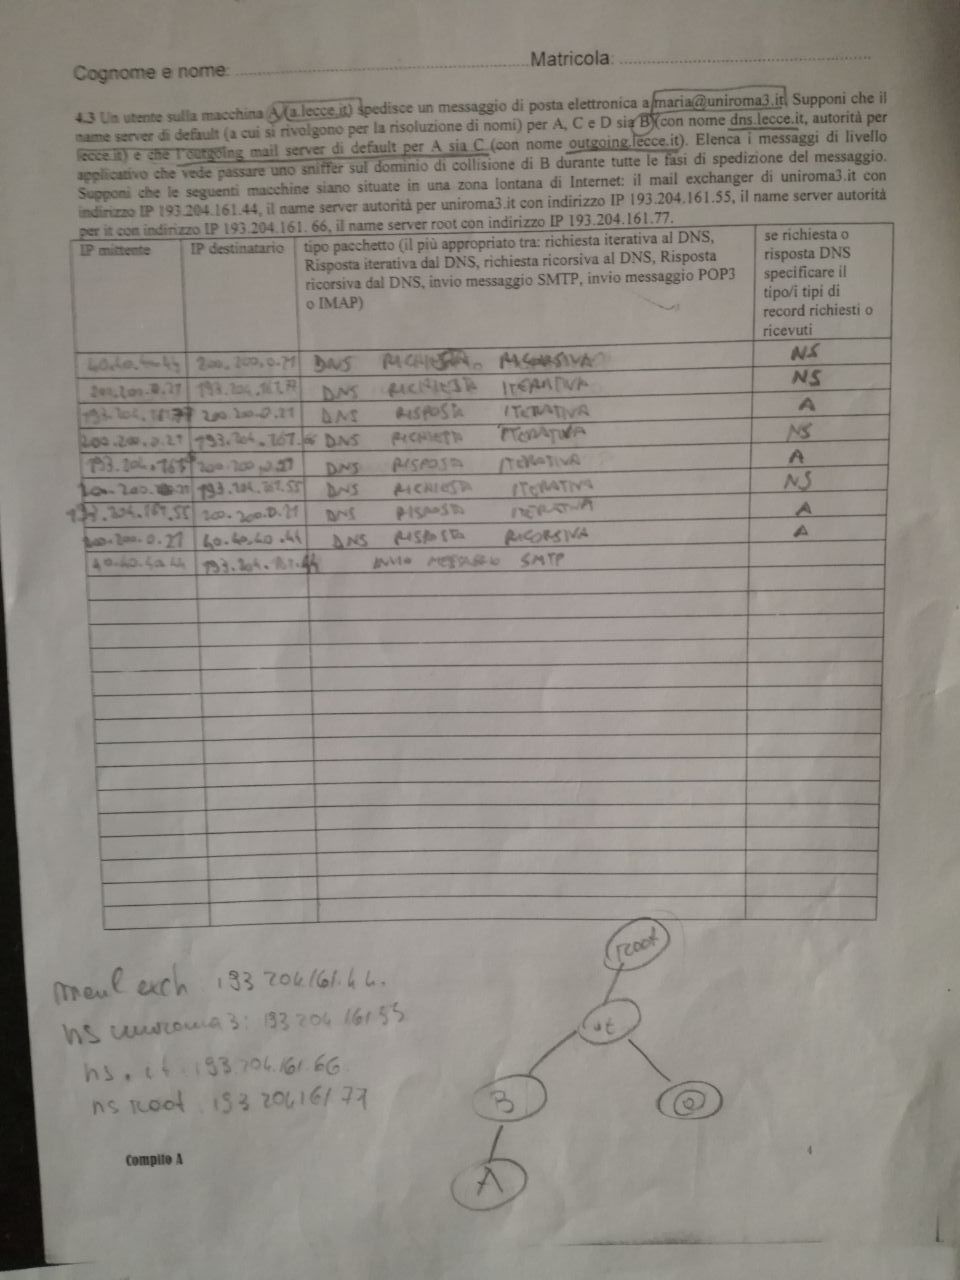 Cognome e nome: Matricola:
4.3 Un utente sulla macchina A (a.lecce.it) spedisce un messaggio di posta elettronica a maria@uniroma3.it. Supponi che il
name server di default (a cui si rivolgono per la risoluzione di nomi) per A, C e D sia B (con nome dns.lecce.it, autorità per
lecce.it) e che l'outgoing mail server di default per A sia C (con nome outgoing.lecce.it). Elenca i messaggi di livello
applicativo che vede passare uno sniffer sul dominio di collisione di B durante tutte le fasi di spedizione del messaggio.
Supponi che le seguenti macchine siano situate in una zona lontana di Internet: il mail exchanger di uniroma3.it con
indirizzo IP 193.204.161.44, il name server autorità per uniroma3.it con indirizzo IP 193.204.161.55, il name server autorità
per it con indirizzo IP 193.204.161. 66, il name server root con indirizzo IP 193.204.161.77.
IP mittente IP destinatario tipo pacchetto (il più appropriato tra: richiesta iterativa al DNS, se richiesta o
Risposta iterativa dal DNS, richiesta ricorsiva al DNS, Risposta risposta DNS
ricorsiva dal DNS, invio messaggio SMTP, invio messaggio POP3 specificare il
o IMAP) tipo/i tipi di
record richiesti o
ricevuti
40.40.40.44 200.200.0.21 DNS RICHIESTA RICORSIVA NS
200.200.0.21 193.204.161.77 DNS RICHIESTA ITERATIVA NS
193.204.161.77 200.200.0.21 DNS RISPOSTA ITERATIVA A
200.200.0.21 193.204.161.66 DNS RICHIESTA ITERATIVA NS
193.204.161 200.200.0.21 DNS RISPOSTA ITERATIVA A
200.200.0.21 193.204.161.55 DNS RICHIESTA ITERATIVA NS
193.204.161.55 200.200.0.21 DNS RISPOSTA ITERATIVA A
200.200.0.21 40.40.40.44 DNS RISPOSTA RICORSIVA A
40.40.40.44 193.204.161.44 INVIO MESSAGGIO SMTP
root
mail exch 193 204.161.44.
it
ns uniroma3: 193 204 161 55
ns.it 193.204.161.66
B @
ns root 193 204 161 77
Compito A 4
A